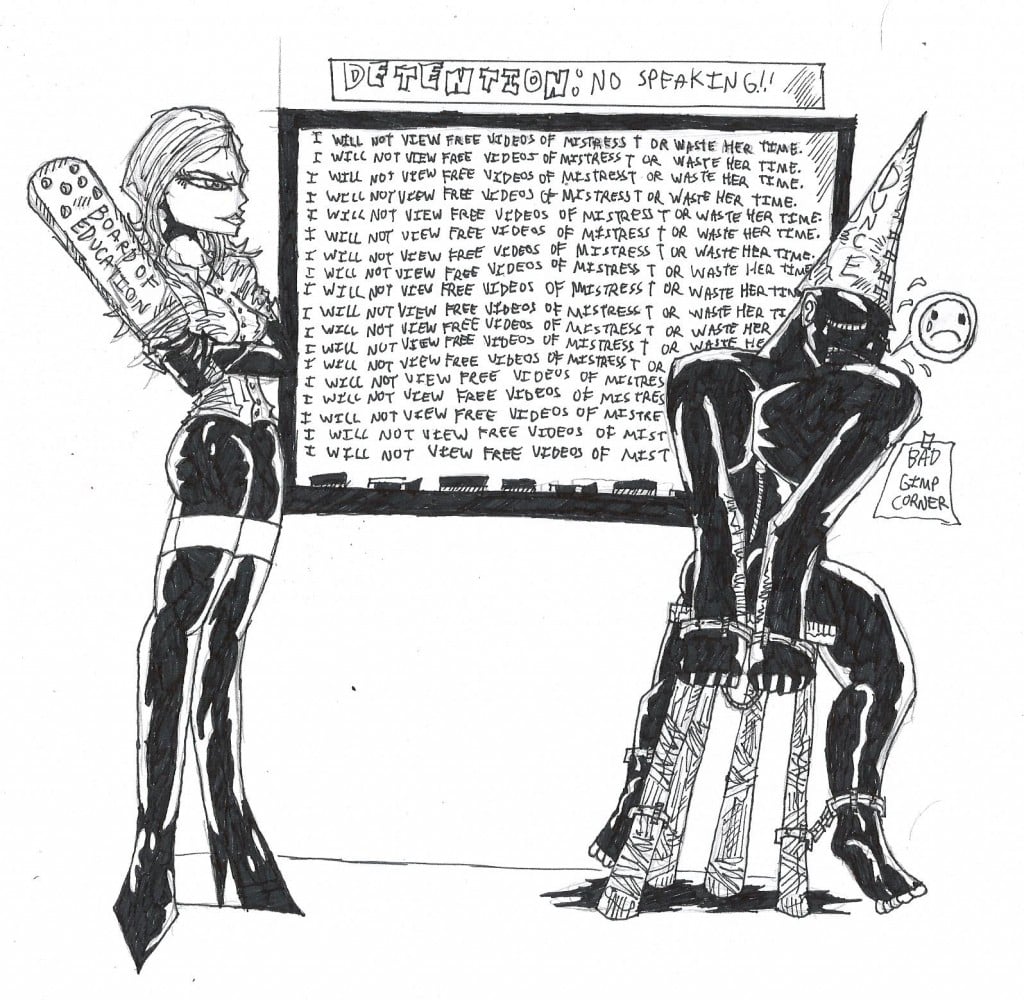 DETENTION: NO SPEAKING!!
I WILL NOT VIEW FREE VIDEOS OF MISTRESS T OR WASTE HER TIME.
I WILL NOT VIEW FREE VIDEOS OF MISTRESS T OR WASTE HER TIME.
I WILL NOT VIEW FREE VIDEOS OF MISTRESS T OR WASTE HER TIME.
I WILL NOT VIEW FREE VIDEOS OF MISTRESS T OR WASTE HER TIME.
I WILL NOT VIEW FREE VIDEOS OF MISTRESS T OR WASTE HER TIME.
I WILL NOT VIEW FREE VIDEOS OF MISTRESS T OR WASTE HER TIME.
I WILL NOT VIEW FREE VIDEOS OF MISTRESS T OR WASTE HER TIME.
I WILL NOT VIEW FREE VIDEOS OF MISTRESS T OR WASTE HER TIME
I WILL NOT VIEW FREE VIDEOS OF MISTRESS T OR WASTE HER TIM
I WILL NOT VIEW FREE VIDEOS OF MISTRESS T OR WASTE HER TI
I WILL NOT VIEW FREE VIDEOS OF MISTRESS T OR WASTE HER
I WILL NOT VIEW FREE VIDEOS OF MISTRESS T OR WASTE HE
I WILL NOT VIEW FREE VIDEOS OF MISTRESS T OR
I WILL NOT VIEW FREE VIDEOS OF MISTRESS
I WILL NOT VIEW FREE VIDEOS OF MISTRESS
I WILL NOT VIEW FREE VIDEOS OF MISTRE
I WILL NOT VIEW FREE VIDEOS OF MIST
I WILL NOT VIEW FREE VIDEOS OF MIST
BOARD OF
EDUCATION
DUNCE
BAD
GIMP
CORNER